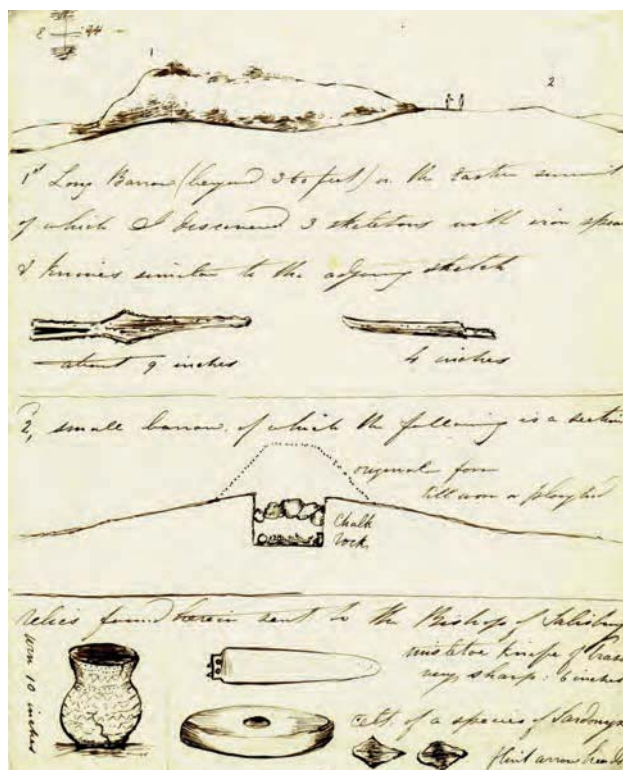 1
2
1st Long Barrow (beyond 360 feet) on the Eastern summit
of which I discovered 3 skeletons with iron spear
& knives similar to the adjoing sketch
about 9 inches
4 inches
2, small barrow, of which the following is a section
original form
till worn or ploughed
Chalk
rock
relics found herein sent to the Bishop of Salisbury
urn 10 inches
mistletoe knife of brass
very sharp: 6 inches
celt. of a species of Sardonyx
flint arrow heads